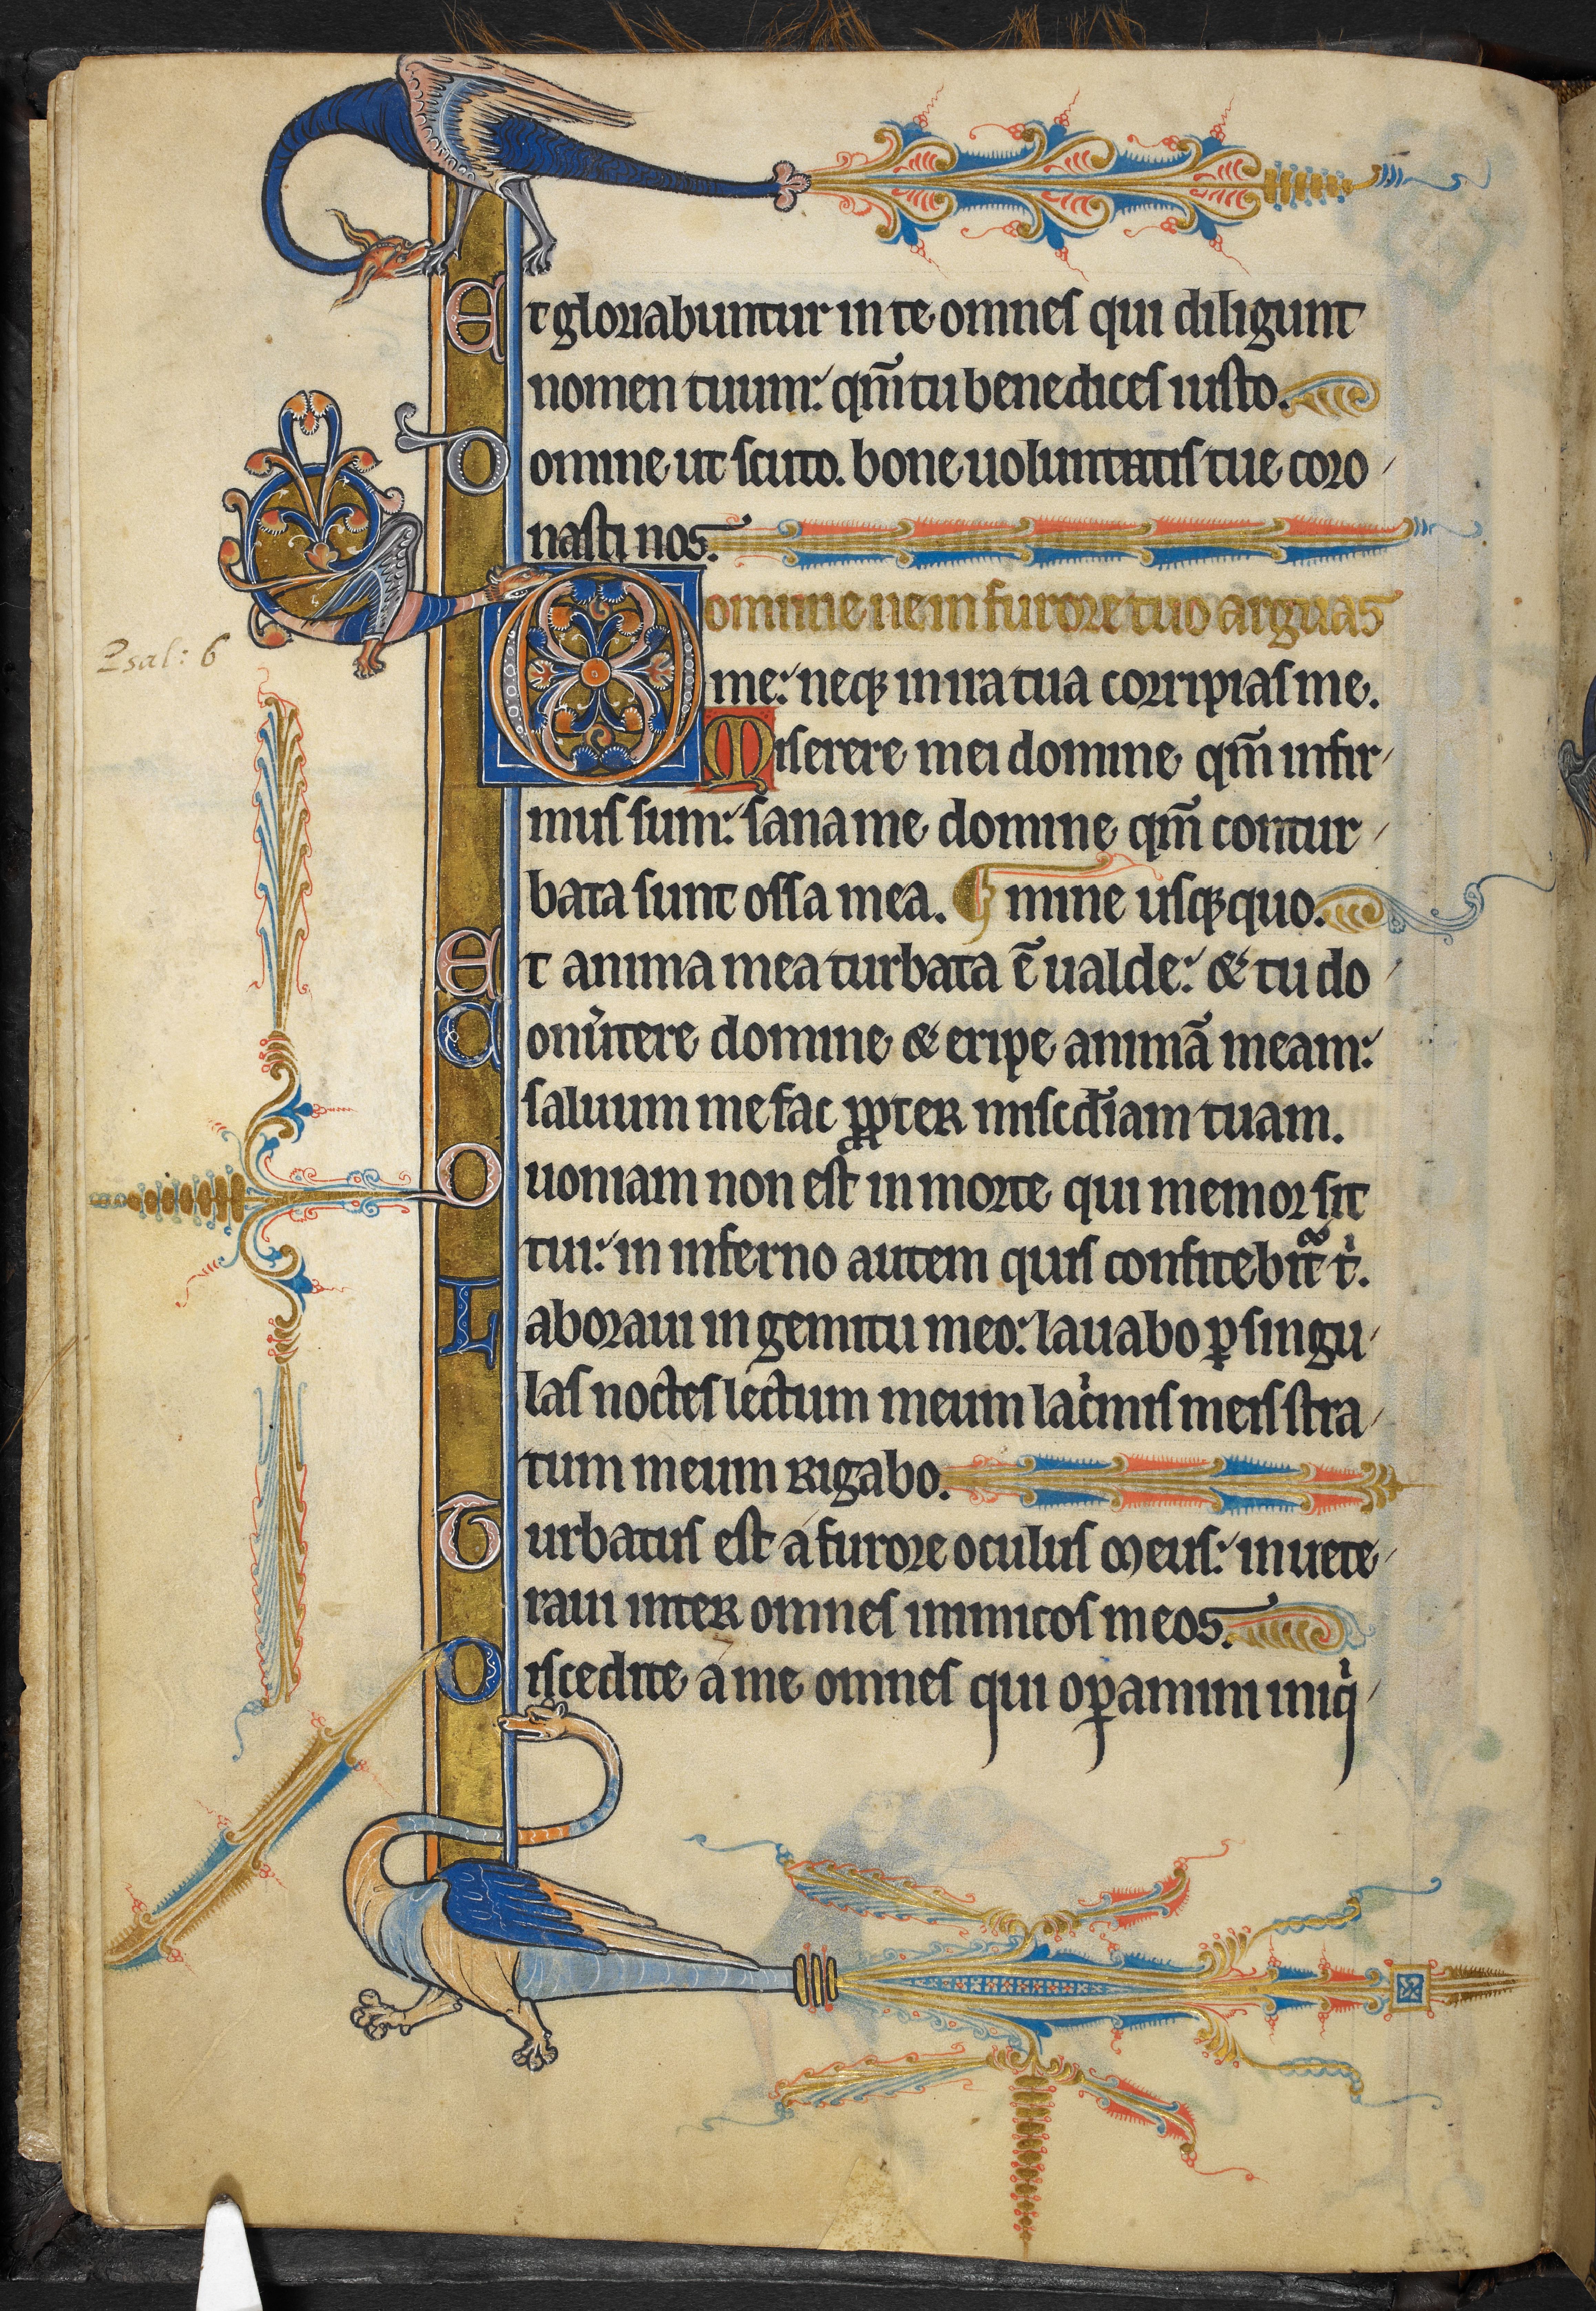 Et gloriabuntur in te omnes qui diligunt
nomen tuum: qm̄ tu benedices iusto.
Domine ut scuto. bone uoluntatis tue coro
nasti nos.
Domine ne in furore tuo arguas
Psal: 6
me: neqꝫ in ira tua corripias me.
Miserere mei domine qm̄ infir
mus sum: sana me domine qm̄ contur
bata sunt ossa mea. mine usqꝫ quo.
Et anima mea turbata ē ualde: & tu do
Conũtere domine & eripe animā meam:
saluum me fac ꝓpter misc̄diam tuam.
Quoniam non est in morte qui memor sit
tui: in inferno autem quis confitebit᷑ tⁱ.
Laboraui in gemitu meo: lauabo ꝑ singu
las noctes lectum meum lacⁱmis meis stra
tum meum rigabo.
Turbatus est a furore oculus meus: inuete
raui inter omnes inimicos meos.
Discedite a me omnes qui oꝑamini iniqⁱ